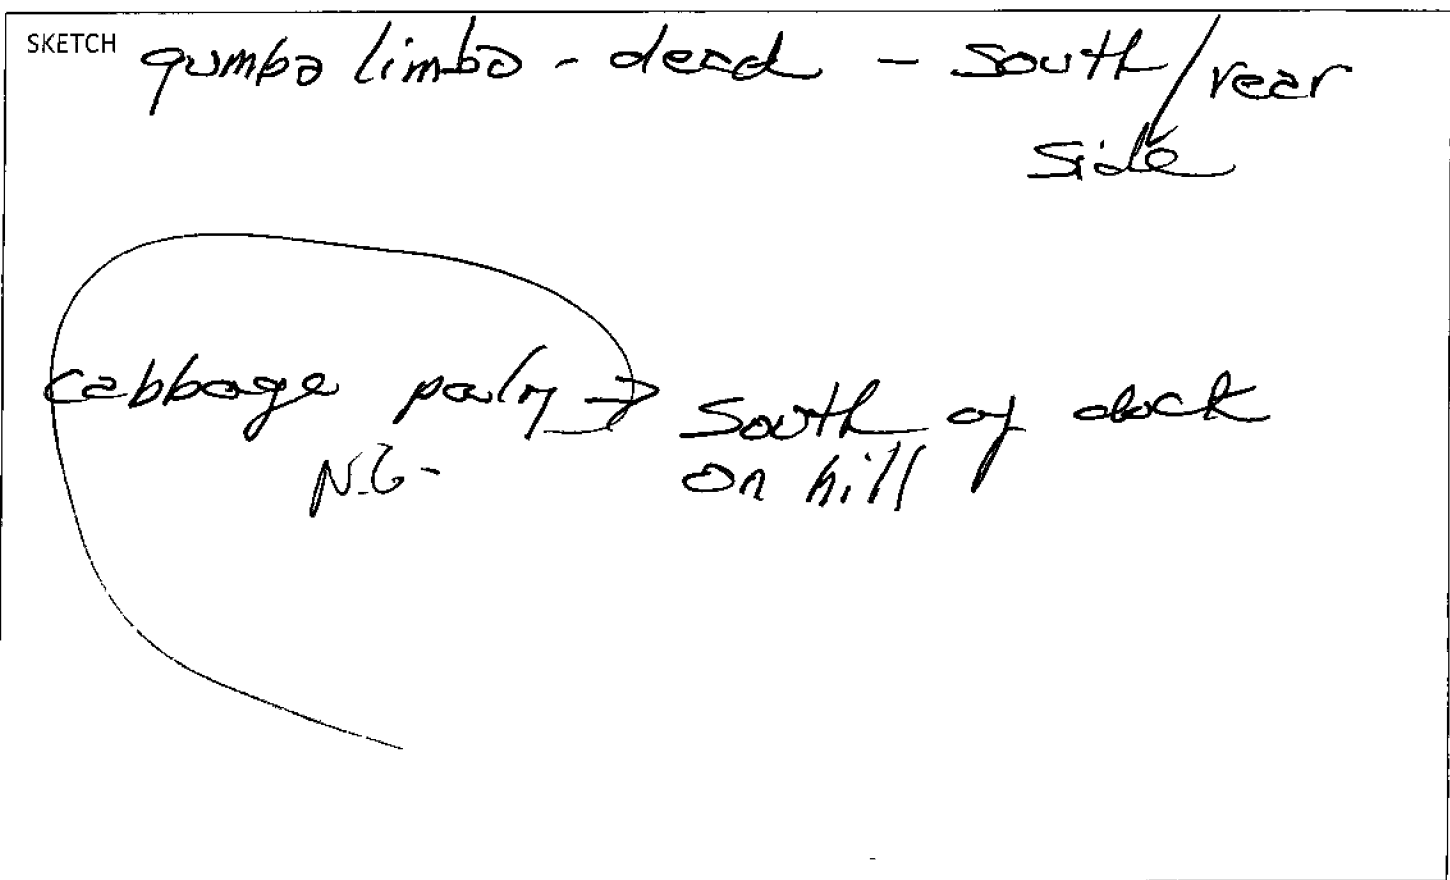 SKETCH gumbo limbo - dead - south/rear
side
cabbage palm → South of dock
N.G- on hill